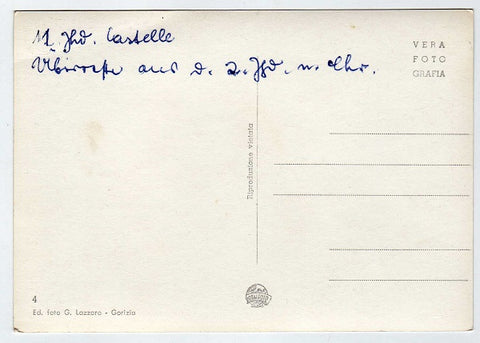 11 Jhd. Castelle
Überreste aus d. 2. Jhd. n. Chr.
VERA
FOTO
GRAFIA
Riproduzione vietata
4
Ed. foto G. Lazzaro - Gorizia